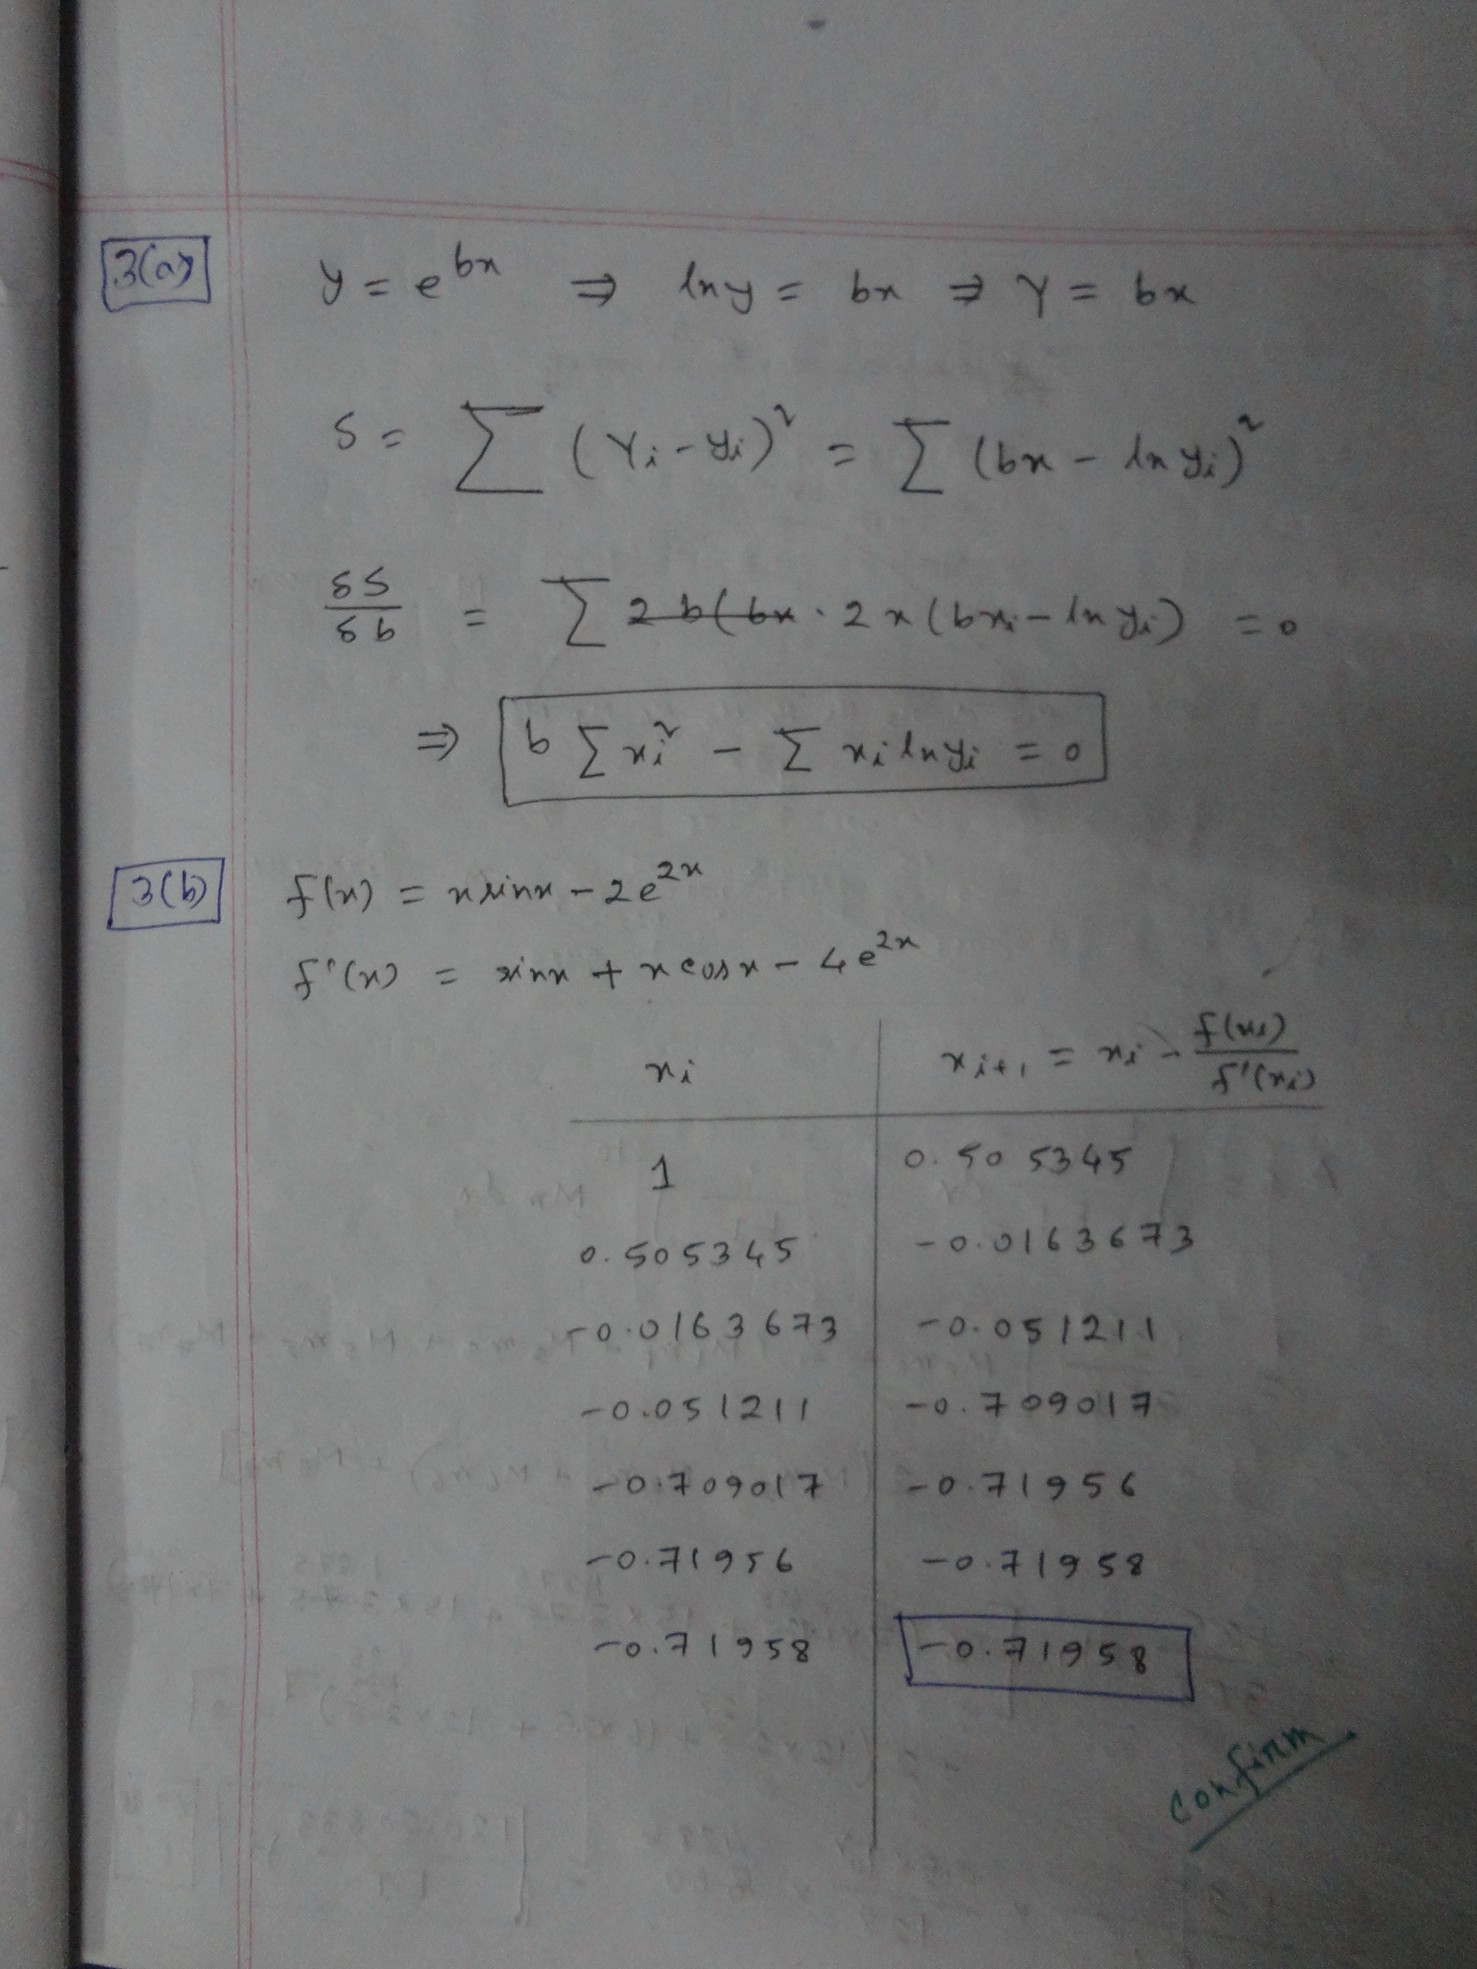 3(a)
y = e^{bx} ⇒ ln y = bx ⇒ Y = bx
S = ∑ (Y_i - y_i)^2 = ∑ (bx - ln y_i)^2
δS/δb = ∑ 2b(bx · 2x(bx_i - ln y_i) = 0
⇒ b ∑ x_i^2 - ∑ x_i ln y_i = 0
3(b)
f(x) = x sinx - 2e^{2x}
f'(x) = sinx + x cosx - 4e^{2x}
x_i x_{i+1} = x_i - f(x_i)/f'(x_i)
1 0.505345
0.505345 -0.0163673
-0.0163673 -0.051211
-0.051211 -0.709017
-0.709017 -0.71956
-0.71956 -0.71958
-0.71958 -0.71958
confirm